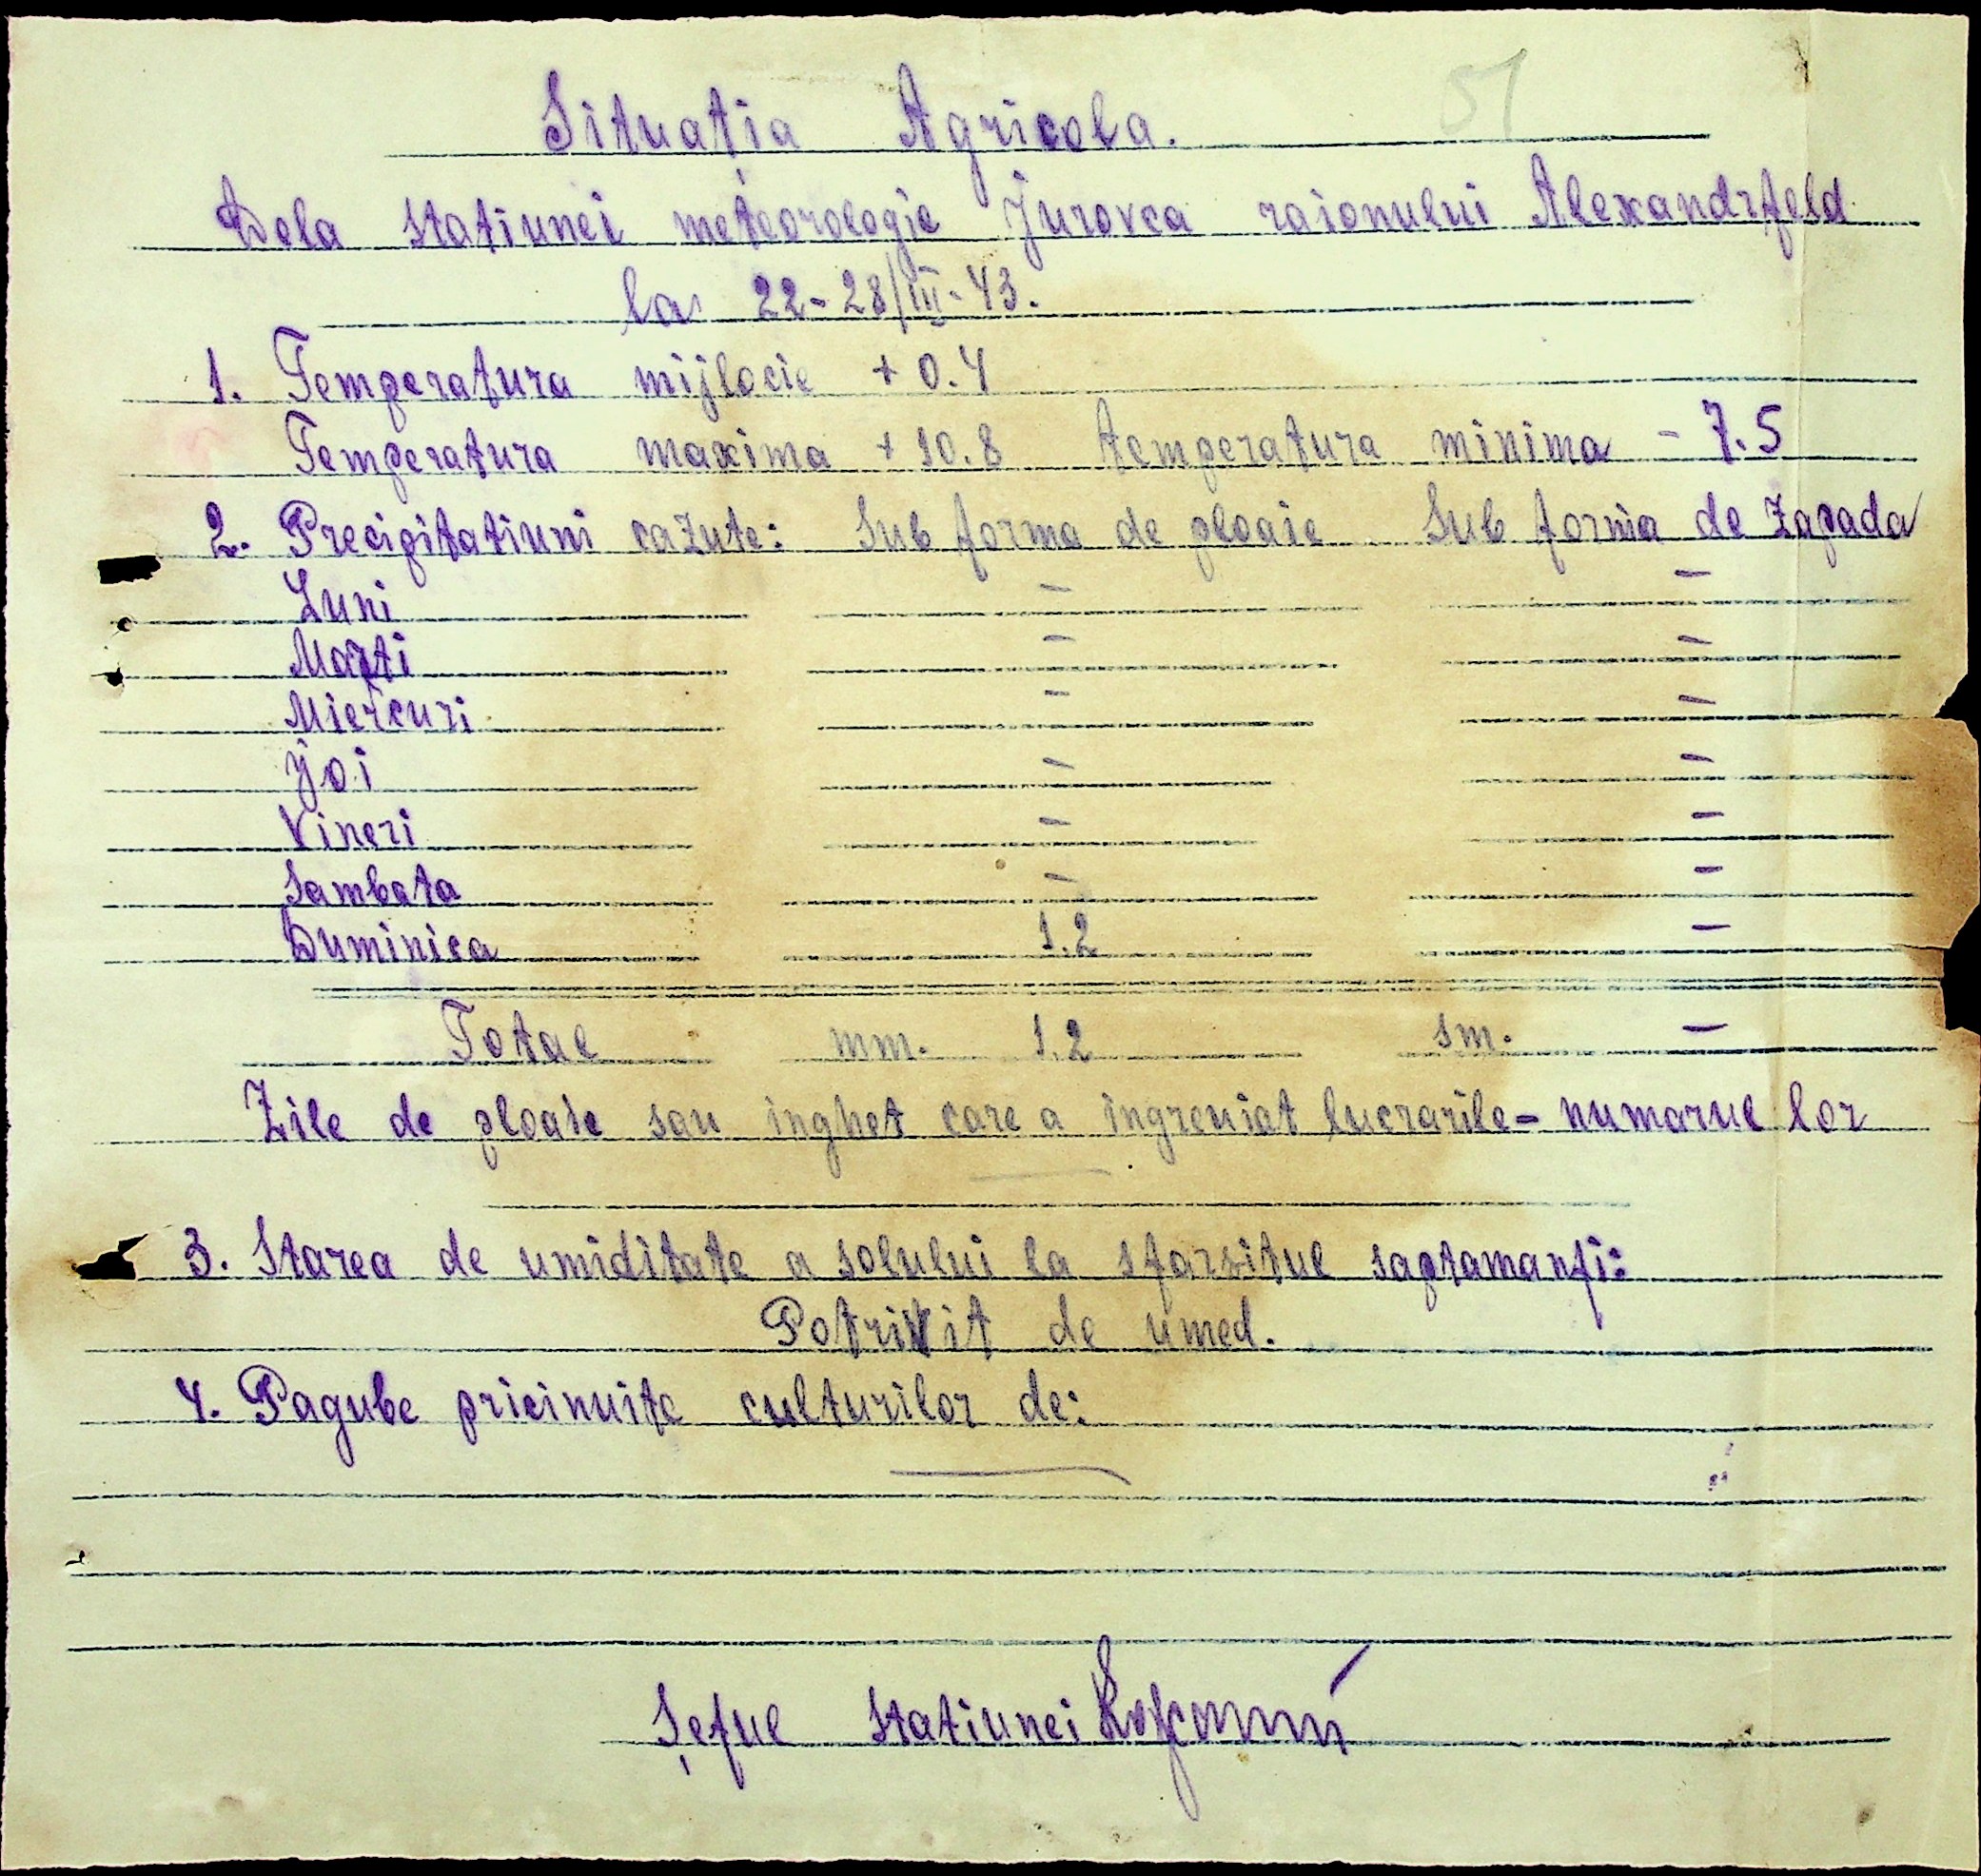 51
Situația Agricola.
Dela statiunei meteorologie Jurovca raionului Alexandrfeld
la 22-28/III-43.
1. Temperatura mijlocie +0.4
Temperatura maxima +10.8 temperatura minima -7.5
2. Precipitatiuni cazute: Sub forma de ploaie Sub forma de zapada
Luni - -
Marti - -
Miercuri - -
Joi - -
Vineri - -
Sambata - -
Duminica 1.2 -
Total mm. 1.2 sm. -
Zile de ploaie sau inghet care a ingreuiat lucrarile - numarul lor
—
3. Starea de umiditate a solului la sfarsitul saptamanfi:
Potrivit de umed.
4. Pagube pricinuite culturilor de:
—
Șeful statiunei